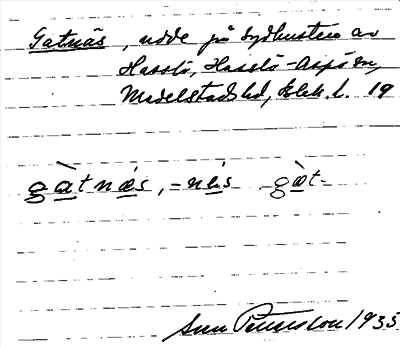 Gatnäs, udde på sydkusten av
Hasslö, Hasslö-Aspö sn,
Medelstads hd, Blek. l. 19
gàtnǽs, -nés gàt-
Sven Petersson 1935